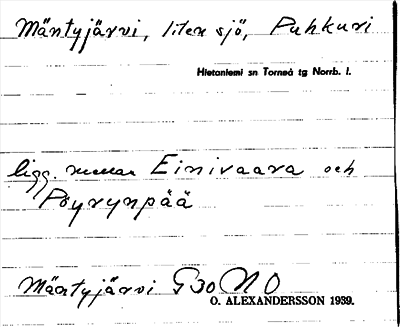 Mäntyjärvi, liten sjö, Puhkuri
Hietaniemi sn Torneå tg Norrb. l.
ligg. mellan Einivaara och
Pöyrynpää
Mäntyjärvi G30 NO
O. ALEXANDERSSON 1939.